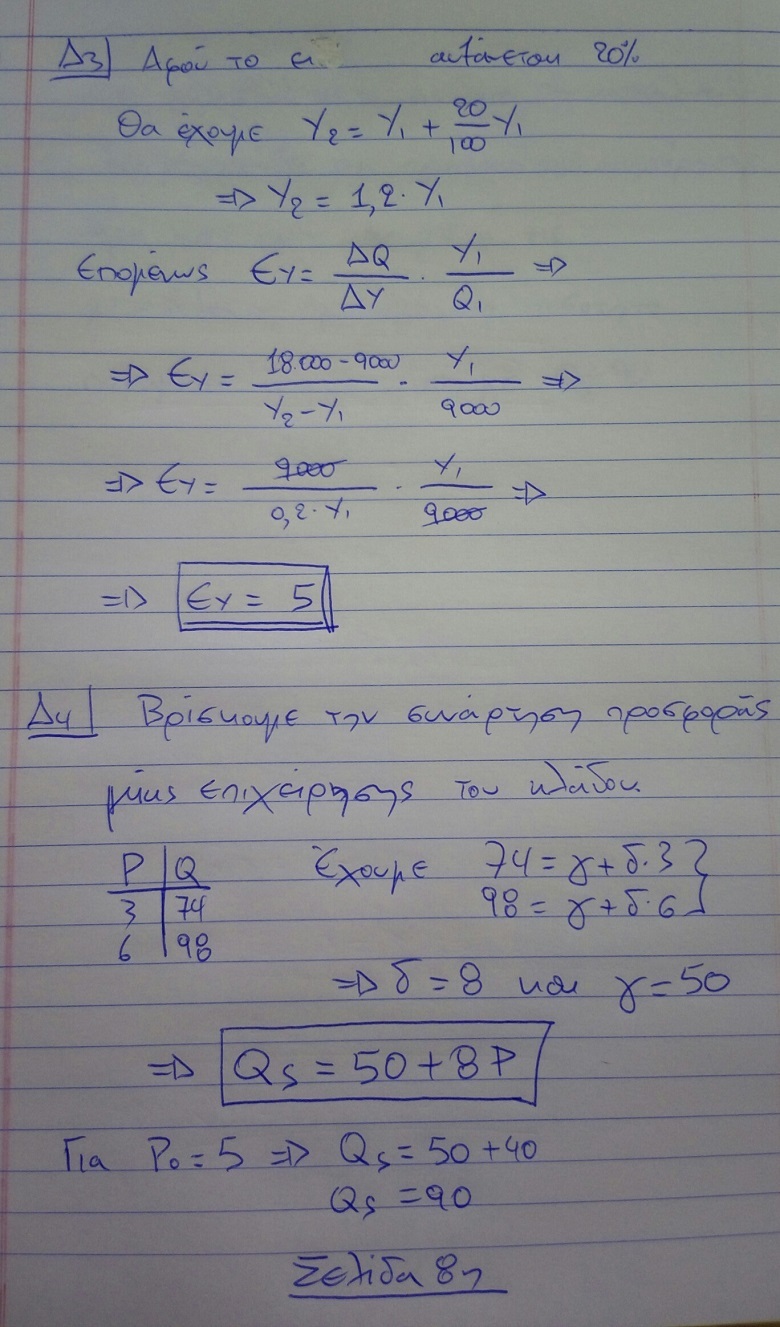 Δ3| Αφού το ει αυξάνεται 20%
Θα έχουμε Y₂ = Y₁ + 20/100 Y₁
⇒ Y₂ = 1,2 · Y₁
Επομένως Ey = ΔQ/ΔY · Y₁/Q₁ ⇒
⇒ Ey = 18.000 - 9000/Y₂ - Y₁ · Y₁/9000 ⇒
⇒ Ey = 9000/0,2 · Y₁ · Y₁/9000 ⇒
⇒ Ey = 5
Δ4| Βρίσκουμε την συνάρτηση προσφοράς
μιας επιχείρησης του κλάδου.
P | Q Έχουμε 74 = γ + δ·3 }
3 | 74 98 = γ + δ·6 }
6 | 98
⇒ δ = 8 και γ = 50
⇒ Qs = 50 + 8P
Για P₀ = 5 ⇒ Qs = 50 + 40
Qs = 90
Σελίδα 8η